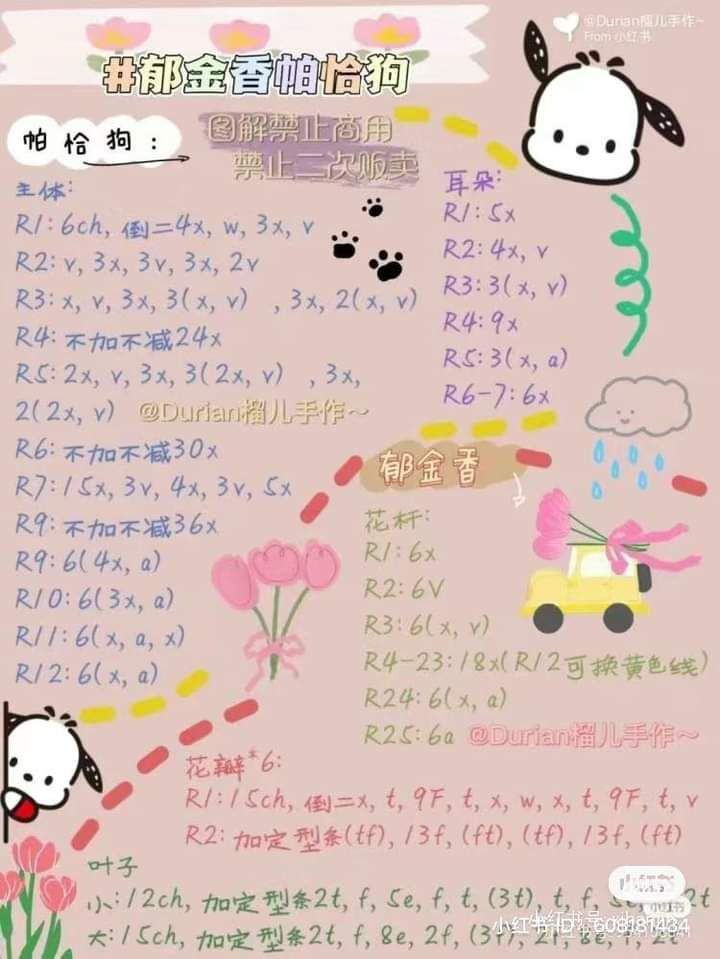 @Durian榴儿手作~
From 小红书
#郁金香帕恰狗
帕恰狗:
图解禁止商用
禁止二次贩卖
主体:
R1:6ch, 倒二4x, w, 3x, v
R2: v, 3x, 3v, 3x, 2v
R3: x, v, 3x, 3(x, v) , 3x, 2(x, v)
R4: 不加不减24x
R5: 2x, v, 3x, 3(2x, v) , 3x,
2(2x, v) @Durian榴儿手作~
R6: 不加不减30x
R7: 15x, 3v, 4x, 3v, 5x
R9: 不加不减36x
R9: 6(4x, a)
R10: 6(3x, a)
R11: 6(x, a, x)
R12: 6(x, a)
耳朵:
R1: 5x
R2: 4x, v
R3: 3(x, v)
R4: 9x
R5: 3(x, a)
R6-7: 6x
郁金香
花杆:
R1: 6x
R2: 6V
R3: 6(x, v)
R4-23: 18x(R12可换黄色线)
R24: 6(x, a)
R25: 6a @Durian榴儿手作~
花瓣*6:
R1: 15ch, 倒二x, t, 9F, t, x, w, x, t, 9F, t, v
R2: 加定型条(tf), 13f, (ft), (tf), 13f, (ft)
叶子
小: 12ch, 加定型条2t, f, 5e, f, t, (3t), t, f, 2t
大: 15ch, 加定型条2t, f, 8e, 2f, 2f, 8e, f, 2t
小红书
小红书
小红书ID: 608181434